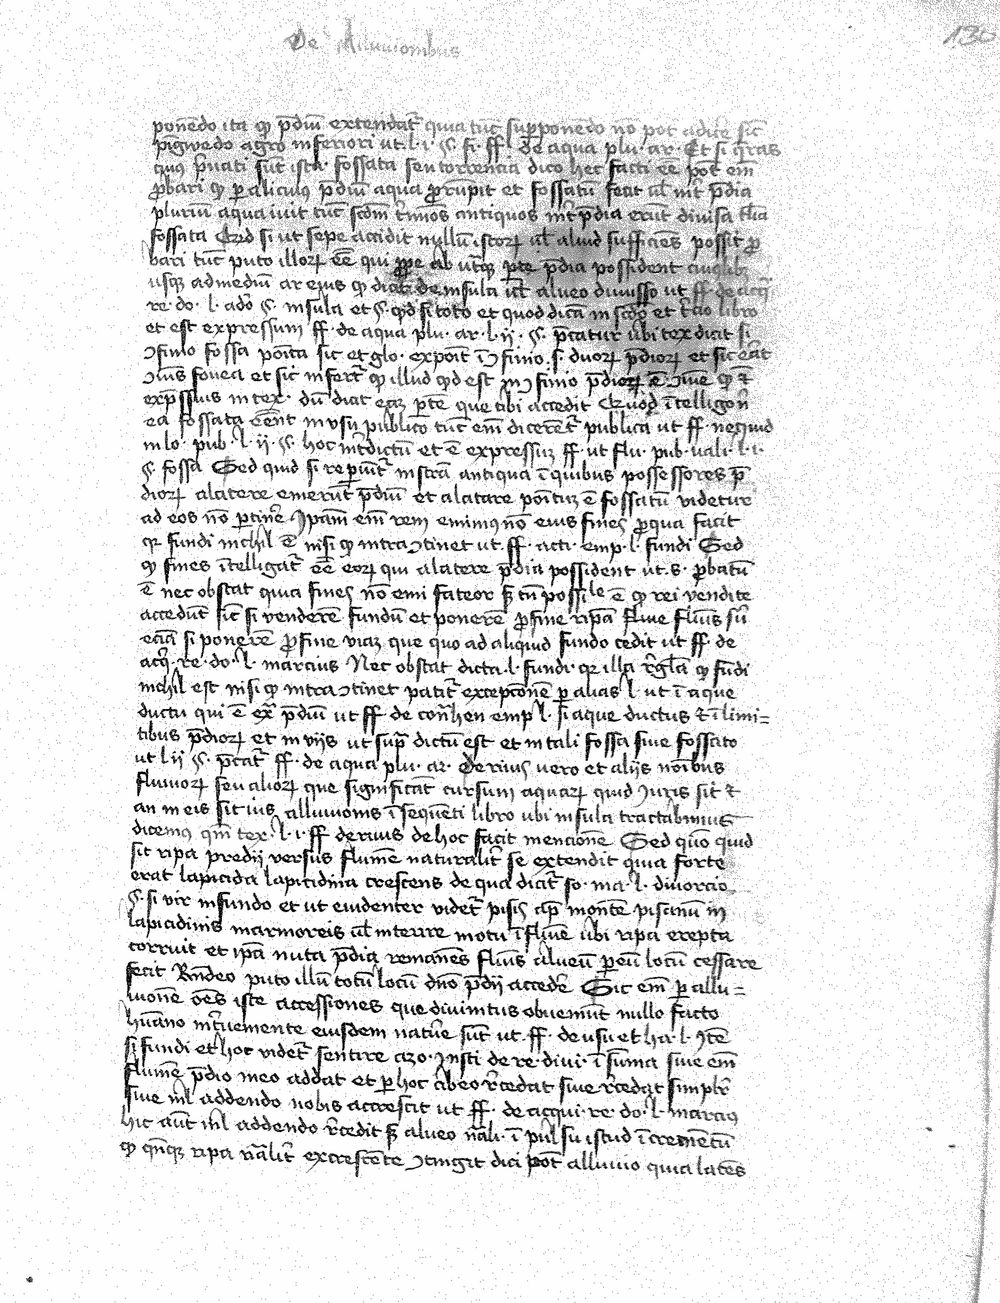 De Alluuionibus
130
ponendo ita qd p̄diū extendat᷑ quia tūc supponendo nō pōt adire sic
pīgwedo agro inferiori ut l. i. §. fi. ff. de aqua plu. ar. Et si q̄ras
cuius p̄uati sūt ista fossata seu torrencia dico hec facti eē pōt em̄
ꝓbari qd per alicuius p̄diū aqua prūpit et fossatū fecit ul̄ int̄ p̄dia
plurium aqua iuit tūc scdm̄ t̄mīos antiquos int̄ p̄dia erūt diuisa
fossata Qd si ut sepe accidit nullū istorum ul̄ aliud sufficiēs possit ꝓ
bari tūc puto illorum eē qui ꝓpe ab utraque parte p̄dia possident
usque ad mediū ar eius qd dicit᷑ de insula ul̄ alueo diuisso ut ff. de acq̄
re. do. l. adeo §. insula et §. qd si toto et quod dicā in scdo et t̄cio libro
et est expressum ff. de aqua plu. ar. l. ii. §. p̄catur ubi tex dicit s.
ꝯfinio fossa posita sic et glo. exponit ī ꝯfinio s. duorum p̄diorum et sic erat
ꝯīs fouea et sic infert᷑ qd illud qd est in ꝯfinio p̄diorum ē ꝯīe
exp̄ssius in tex. dū dicit eaꝫ partē que tibi accedit Et quod ītelligo n̄
ea fossata eēnt in vsu publico tūc em̄ dicerēt᷑ publica ut ff. nequid
in lo. pub. l. ii. §. hoc int̄dictū et ē expressuꝫ ff. ut flu. pub. uali. l. i.
§. fossa Sed quid si reperiūt᷑ instrā antiqua ī quibus possessores p̄
diorum a latere emerūt p̄diū et a latere positaꝫ ē fossatū videtur
ad eos nō ptinē Ipam em̄ rem emimus nō eius fines ꝓ qua facit
qr fundi nichil ē nisi qd intra ꝯtinet ut. ff. acti. emp. l. fundi Sed
qd fines ītelligāt᷑ eē eorum qui a latere p̄dia possident ut. s. ꝓbatū
ē nec obstat quia fines nō emi fateor sꝫ tn̄ possile ē qd rei vendite
accedūt sic si venderē fundū et ponerē ꝓ fine ripā siue fluuius siu
eciā si ponerē ꝓ fine viaꝫ que quo ad aliquid fundo cedit ut ff. de
acq̄. re. do. l. marcius Nec obstat dicta l. fundi. qr illa r̄gla qd fūdi
nichil est nisi qd intra ꝯtinet patit᷑ excepcionē per alias l. ut ī aque
ductu qui ē ext̄ p̄diū ut ff. de cont̄hen emp. l. si aque ductus et ī limi=
tibus p̄diorum et in vijs ut sup̄ dictū est et in tali fossa siue fossato
ut l ii §. p̄cat᷑ ff. de aqua plu. ar. De riuis uero et alijs noībus
fluuiorum seu aliorum que significāt cursum aquarum quid iuris sit et
an in eis sit ius alluuionis ī sequēti libro ubi insula tractabimus
dicemus qm̄ tex. l. i. ff. de riuis de hoc facit mencionē Sed quō quid
sit ripa predij versus flumē naturalit̄ se extendit quia forte
erat lapicida lapicidina crescens de qua dicit᷑ so. ma. l. diuorcio
§. si vir in fundo et ut euidenter videt᷑ pisis ap̄ montē pisanū in
lapicidinis marmoreis ul̄ in terre motu ī flumē ubi ripa erepta
corruit et ip̄a nuta p̄dia remanēs fluuius alueū per eū locū cessare
fecit Rn̄deo puto illū totū locū dn̄o p̄dij acceder̄ Sic em̄ per allu=
uionē oēs iste accessiones que diuinitus obueniūt nullo facto
hūano int̄uemente eiusdem nature sūt ut. ff. de usu et ha. l. Itē
si fundi et hoc videt᷑ sentire azo. Insti de re. diui. ī sūma siue em̄
flumē p̄dio meo addat et per hoc albeo r̄cedat siue r̄cedat simplr̄
siue nil addendo nobis accrescit ut ff. de acqui. re. do. l. marcius
hic aūt nil addendo r̄cedit sꝫ alueo nāli. ī pulsu istud īcremētū
qd qn̄qꝫ ripa nālit̄ excrescēte ꝯtingit dici pōt alluuio quia latēs